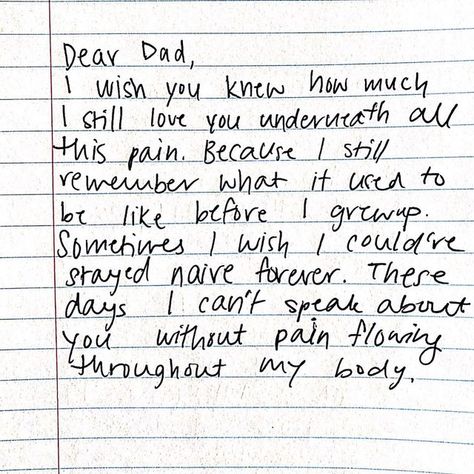 Dear Dad,
I wish you knew how much
I still love you underneath all
this pain. Because I still
remember what it used to
be like before I grewup.
Sometimes I wish I could've
stayed naive forever. These
days I can't speak about
you without pain flowing
throughout my body.